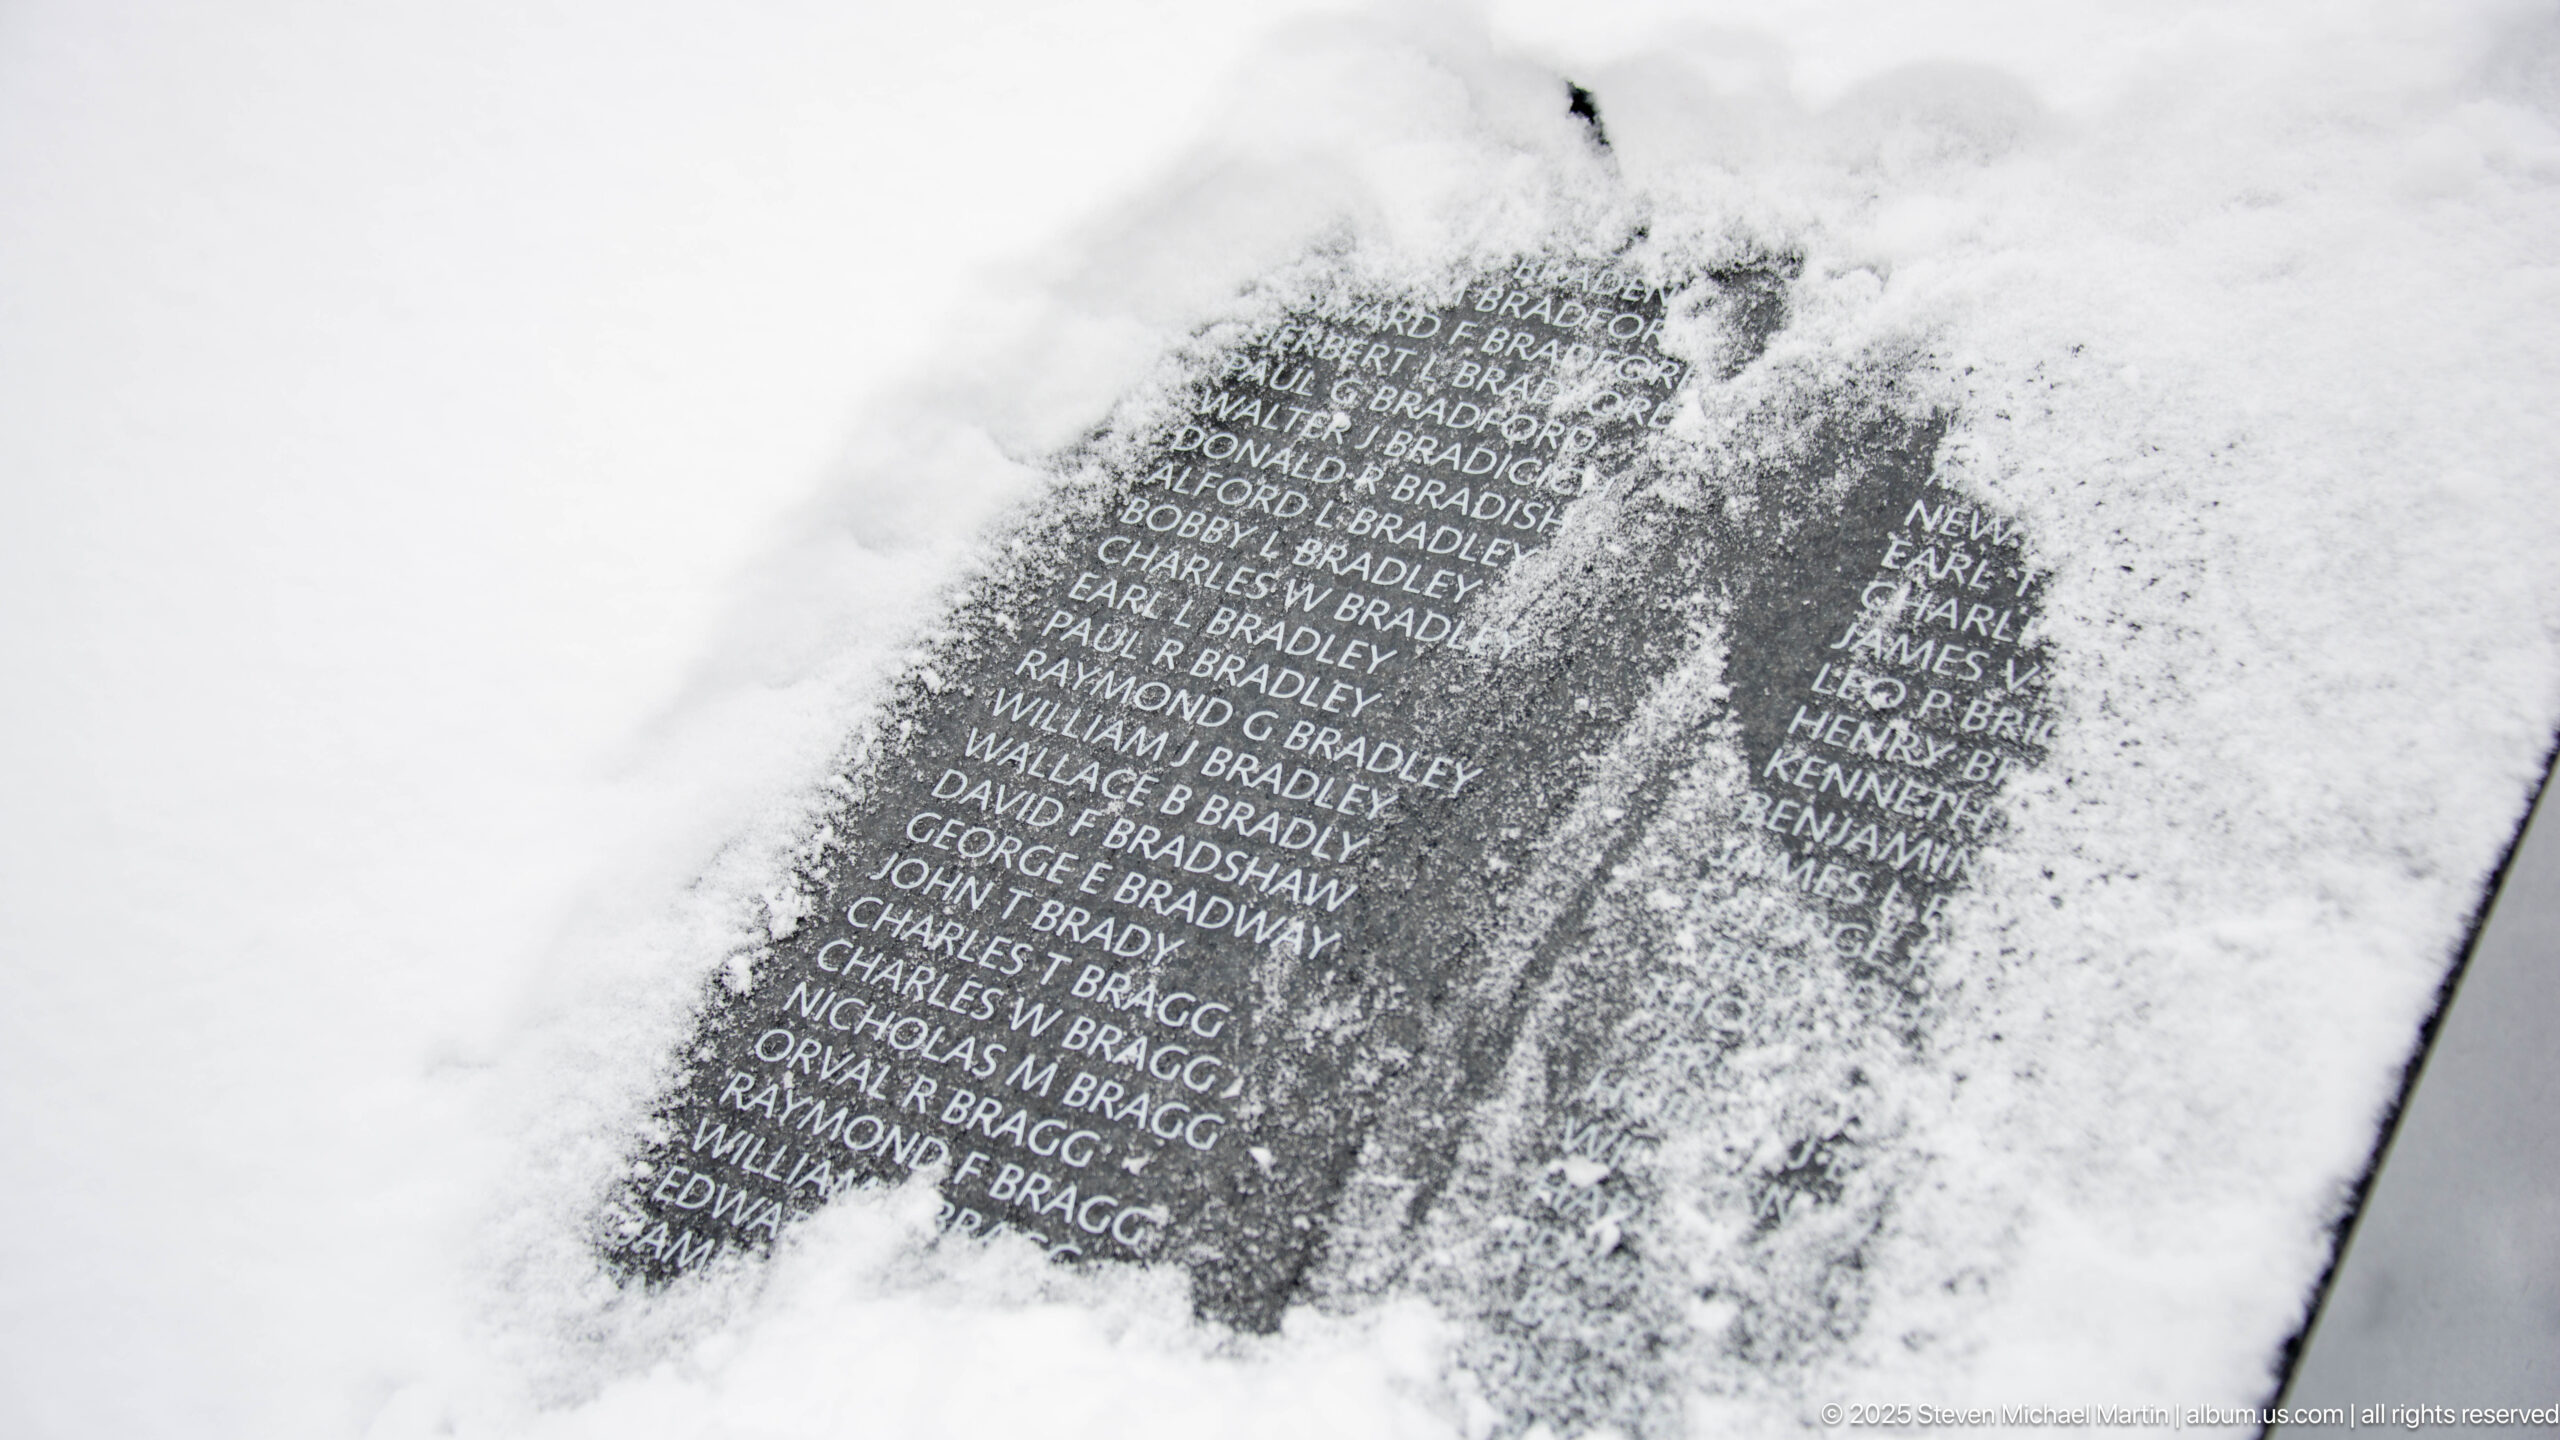 BRADEN
BRADFOR
ARD F BRADFORD
ERBERT L BRADFORD
PAUL G BRADFORD
WALTER J BRADICICH
DONALD R BRADISH
ALFORD L BRADLEY
BOBBY L BRADLEY
CHARLES W BRADLEY
EARL L BRADLEY
PAUL R BRADLEY
RAYMOND G BRADLEY
WILLIAM J BRADLEY
WALLACE B BRADLY
DAVID F BRADSHAW
GEORGE E BRADWAY
JOHN T BRADY
CHARLES T BRAGG
CHARLES W BRAGG
NICHOLAS M BRAGG
ORVAL R BRAGG
RAYMOND F BRAGG
WILLIAM BRAGG
EDWA
JAM
NEW
EARL T
CHARL
JAMES V
LEO P BRIG
HENRY BR
KENNETH
BENJAMIN
JAMES L
© 2025 Steven Michael Martin | album.us.com | all rights reserved